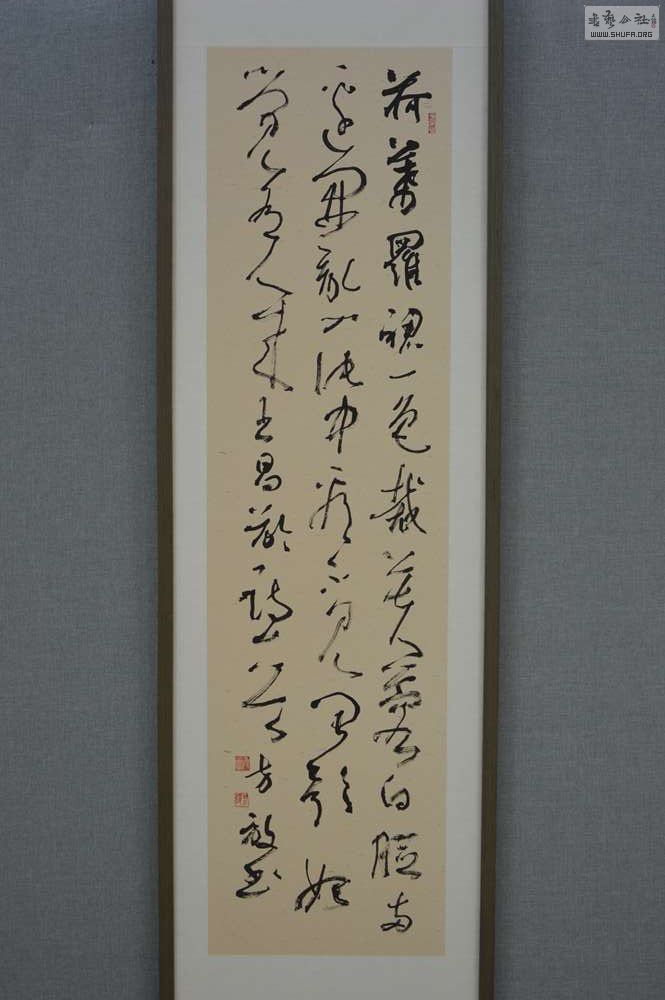 荷葉羅裙一色裁芙蓉向臉兩
邊開亂入池中看不見聞歌始
覺有人來王昌齡方書
書藝公社
WWW.SHUFA.ORG